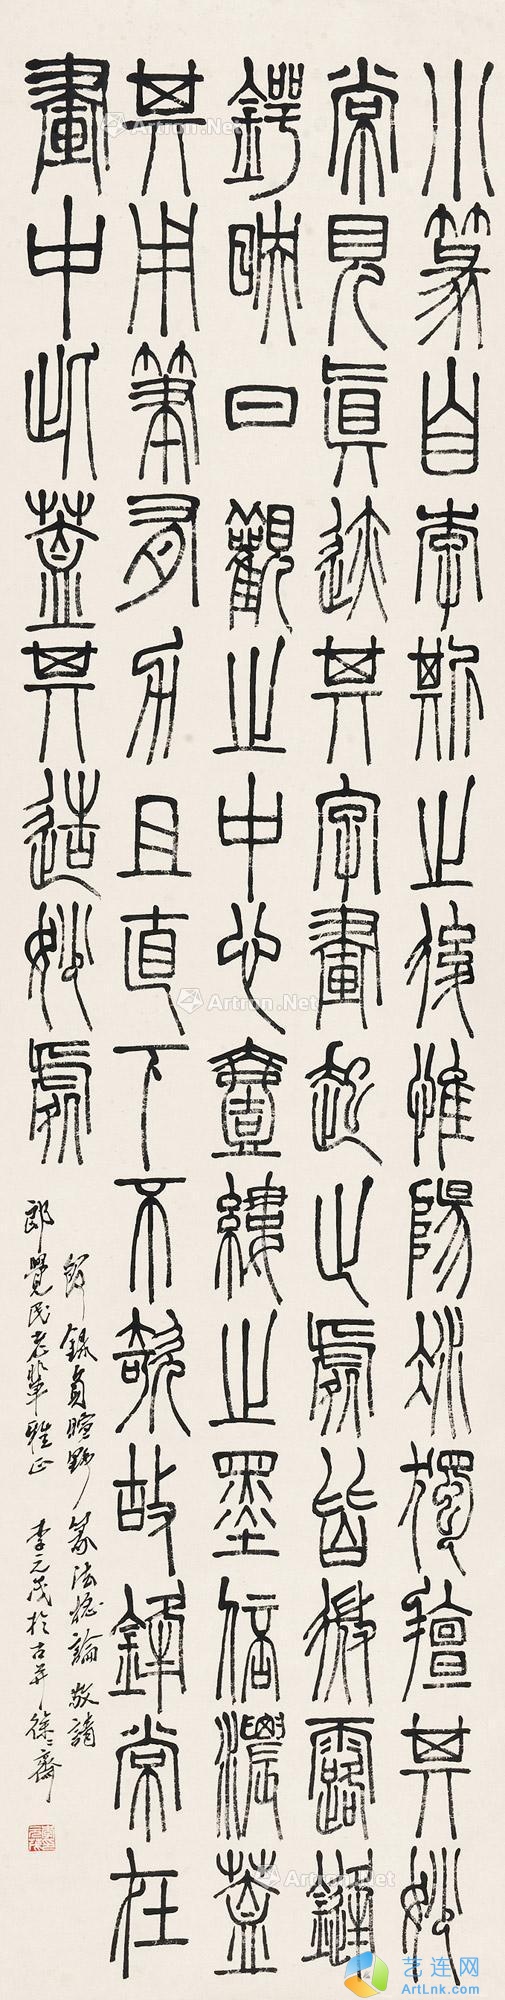 小篆自李斯之後惟陽冰獨擅其妙
常見真迹其字畫起止處皆微露鋒
鍔映日觀之中心壹縷之墨倍濃蓋
其用筆有力且直下不欹故鋒常在
畫中此蓋其造妙處
節錄負暄野篆法總論敬請
郎覺民老輩雅正 李元茂於古并徐徐齋
Artron.Net
Artron.Net
Artron.Net
Artron.Net
Artron.Net
Artron.Net
Artron.Net
艺连网
ArtLnk.com